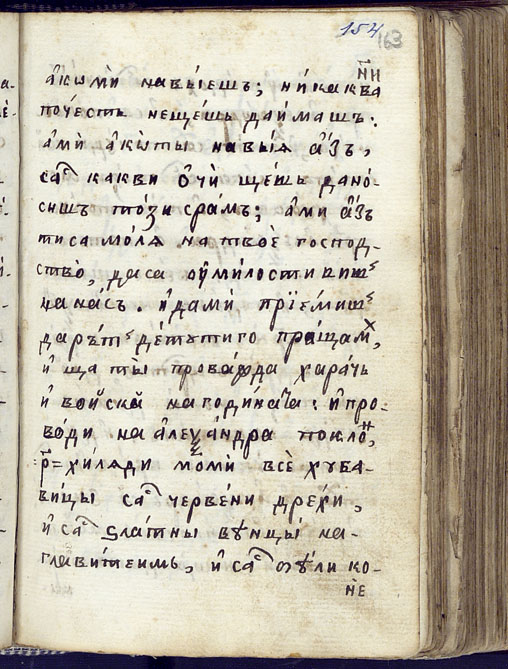 154
163
н҃и
а҆кѡмѝ навы́ешъ, ни́каква
поче́сть не щешь даи́машъ:
а҆мѝ а҆кѡты̀ навы́ѧ а҆́зъ,
саⷭ҇ какви ѻ҆чѝ ще́шь дано-
сишъ то́зи сра́мъ; а҆ми а҆́зъ
тиса мо́лѧ на твоѐ господ-
ство̀, даса оу҆милостивишъ
на на́съ. и҆ да мѝ прїе́мишъ
даръ́тъ де́тути го пра́щамъ,
и҆ ща ты̀ прова́жда хара́чь
и҆ во́йска на годи́на̀та: и҆ про-
во́ди на а҆леѯа́ндра покло́н,
р҃= хи́лѧди мо́мѝ всѐ хуба-
ви́цы саⷭ҇ черве́ни дре́хи,
и҆ саⷭ҇ ѕла́тны вѣнцы́ на-
глави́теимь, и҆ саⷭ҇ ѹли ко-
не